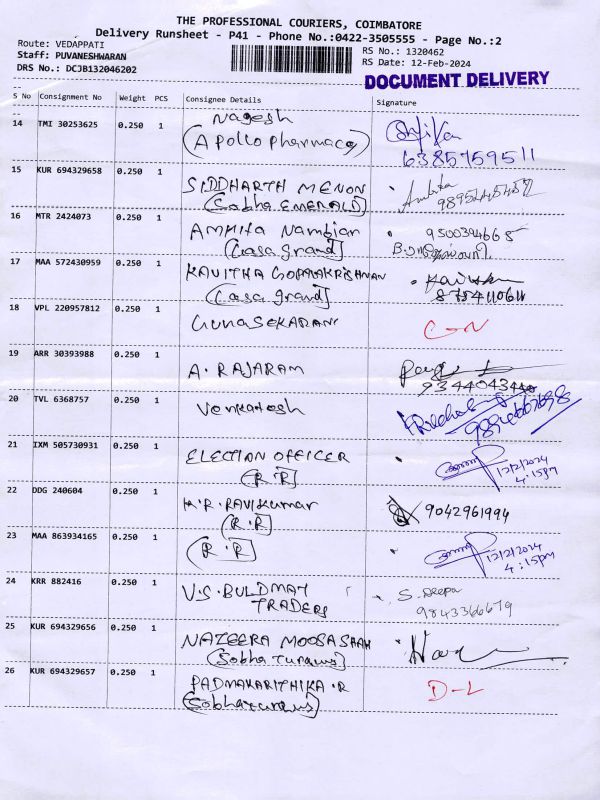 THE PROFESSIONAL COURIERS, COIMBATORE
Delivery Runsheet - P41 - Phone No.:0422-3505555 - Page No.:2
Route: VEDAPPATI
Staff: PUVANESHWARAN
DRS No.: DCJB132046202
RS No.: 1320462
RS Date: 12-Feb-2024
DOCUMENT DELIVERY
S No Consignment No Weight PCS Consignee Details Signature
14 TMI 30253625 0.250 1 Nagesh
(Apollo Pharmacy)
6385759511
15 KUR 694329658 0.250 1 SIDDHARTH MENON
(Sobha EMERALD)
Ambika
16 MTR 2424073 0.250 1 AMRITA Nambiar
(Casa grand)
9500394665
17 MAA 572430959 0.250 1 KAVITHA GOPALAKRISHNAN
(Casa grand)
8754110611
18 VPL 220957812 0.250 1 GUNASEKARAN
C-N
19 ARR 30393988 0.250 1 A. RAJARAM
20 TVL 6368757 0.250 1 Venkatesh
21 IXM 505730931 0.250 1 ELECTION OFFICER
(R.R)
12/2/2024
4:15pm
22 DDG 240604 0.250 1 K.R. RAVIKUMAR
(R.R)
9042961994
23 MAA 863934165 0.250 1 (R.R)
12/2/2024
4:15pm
24 KRR 882416 0.250 1 V.S. BULDMAT
TRADERS
S. Deepa
9843366679
25 KUR 694329656 0.250 1 NAZEERA MOOSASAAH
(Sobha Turquus)
26 KUR 694329657 0.250 1 PADMAKARITHIKA.R
D-L